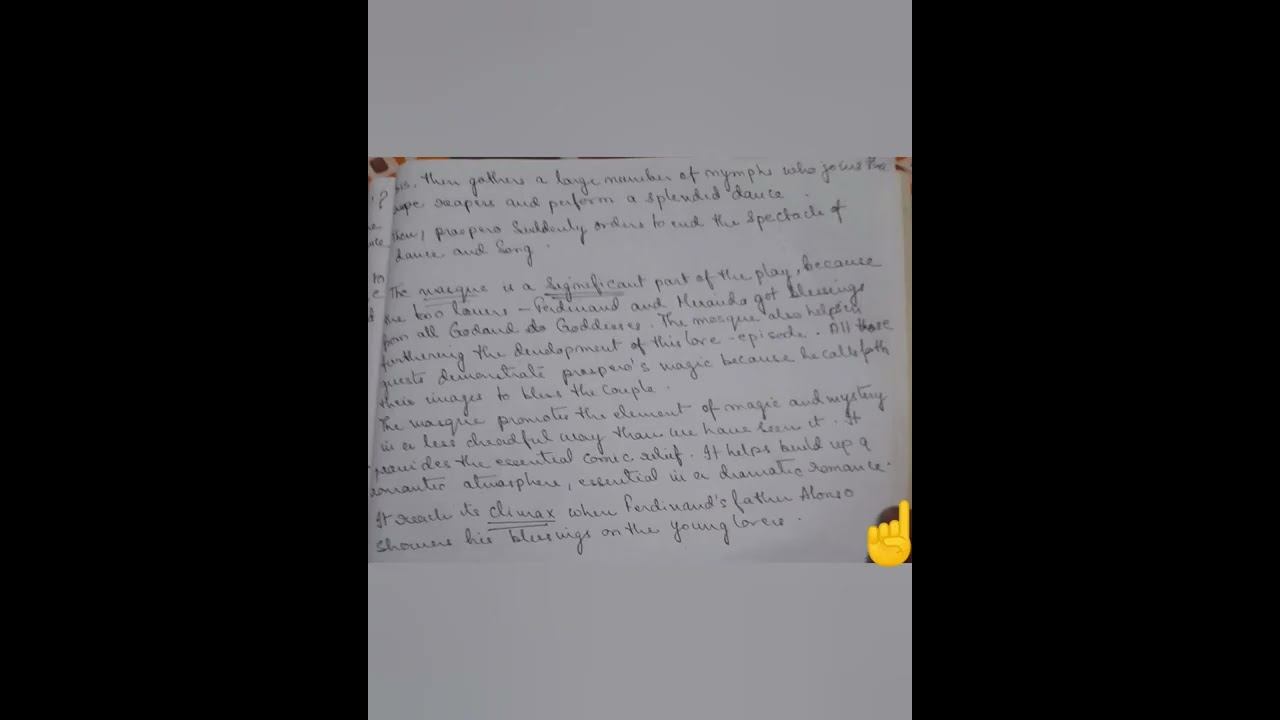 ? Iris. Then gathers a large number of nymphs who joins the
ripe reapers and perform a splendid dance.
then, prospero Suddenly orders to end the spectacle of
dance and Song.
The masque is a significant part of the play, because
the two lovers – Ferdinand and Miranda got blessings
from all God and do Goddesses. The masque also helps in
furthering the development of this love-episode. All these
guests demonstrate prospero's magic because he calls forth
their images to bless the couple.
The masque promotes the element of magic and mystery
in a less dreadful way than we have seen it. It
provides the essential comic relief. It helps build up a
romantic atmosphere, essential in a dramatic romance.
It reach its climax when Ferdinand's father Alonso
showers his blessings on the young lovers.